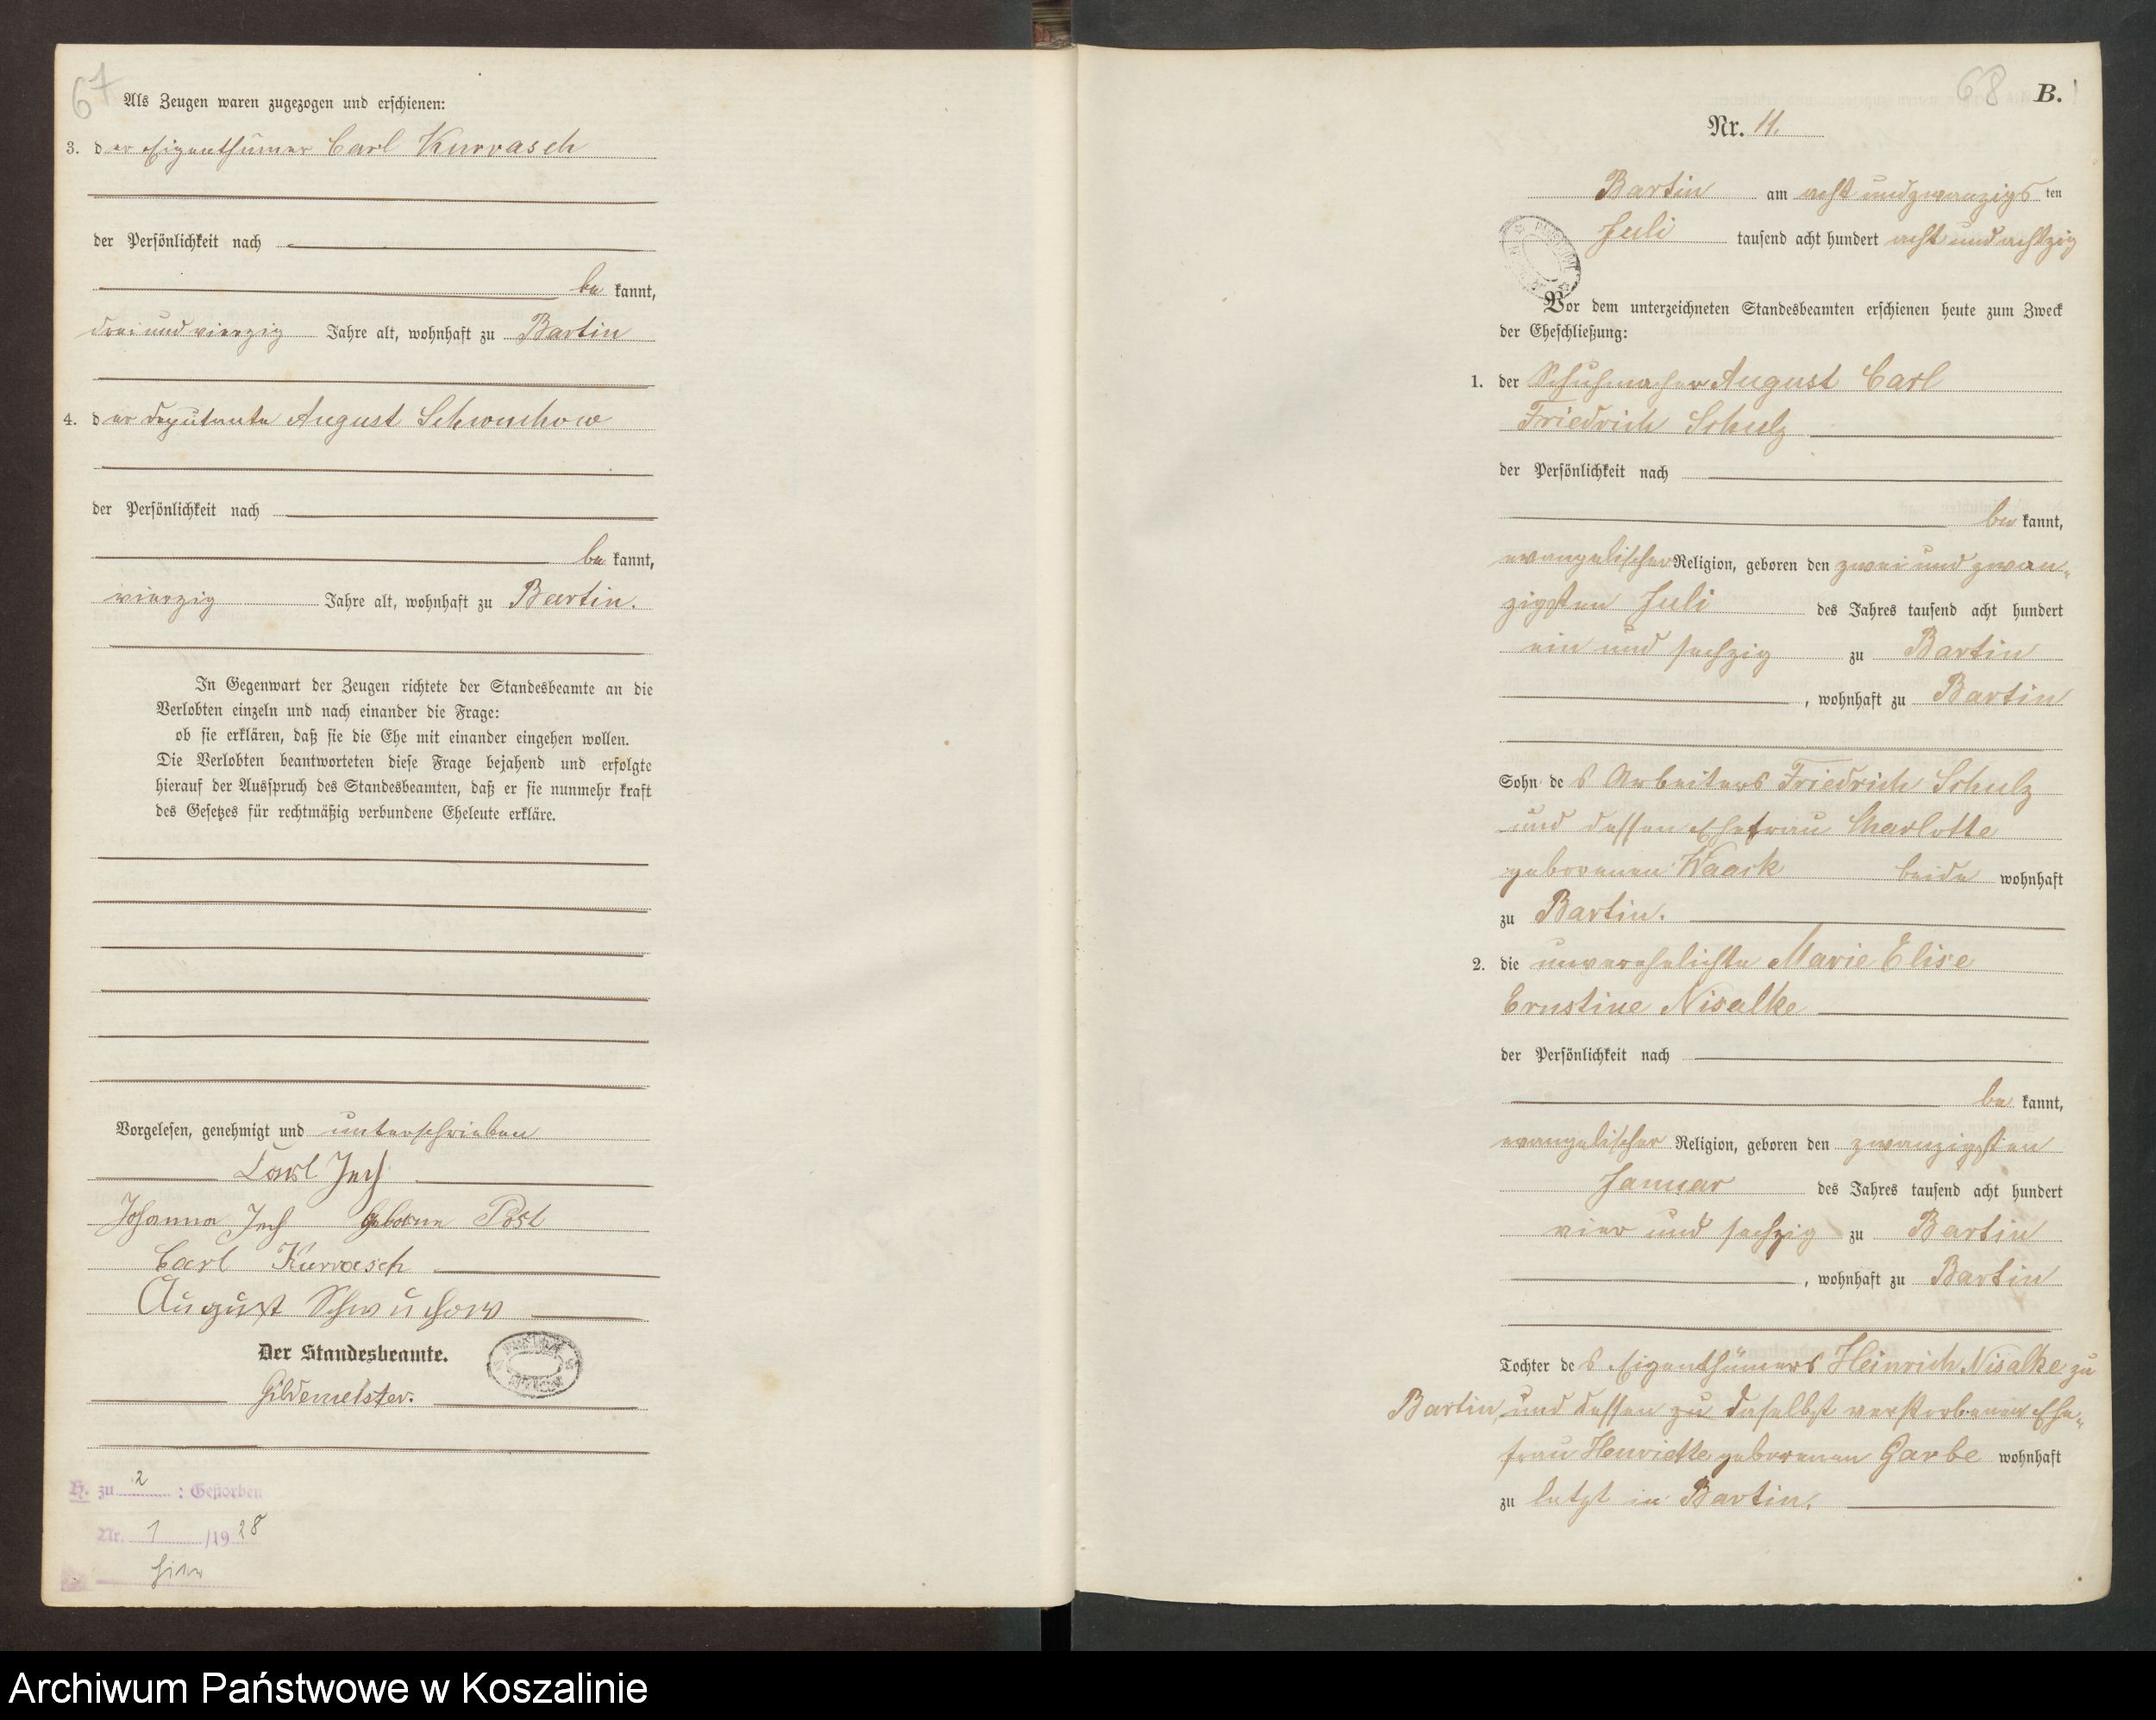 67
Als Zeugen waren zugezogen und erschienen:
3. der Eigenthümer Carl Kurrasch
der Persönlichkeit nach
be kannt,
drei und vierzig Jahre alt, wohnhaft zu Bartin
4. der Deputante August Schwuchow
der Persönlichkeit nach
be kannt,
vierzig Jahre alt, wohnhaft zu Bartin.
In Gegenwart der Zeugen richtete der Standesbeamte an die
Verlobten einzeln und nach einander die Frage:
ob sie erklären, daß sie die Ehe mit einander eingehen wollen.
Die Verlobten beantworteten diese Frage bejahend und erfolgte
hierauf der Ausspruch des Standesbeamten, daß er sie nunmehr kraft
des Gesetzes für rechtmäßig verbundene Eheleute erkläre.
Vorgelesen, genehmigt und unterschrieben
Carl Jech
Johanna Jech geborne Post
Carl Kurrasch
August Schwuchow
Der Standesbeamte.
Gildemeister.
H. zu 2 : Gestorben
Nr. 1 /19 28
68 B.
Nr. 11.
Bartin am acht und zwanzigs ten
Juli tausend acht hundert acht und achtzig
Vor dem unterzeichneten Standesbeamten erschienen heute zum Zweck
der Eheschließung:
1. der Schuhmacher August Carl
Friedrich Schulz
der Persönlichkeit nach
be kannt,
evangelischer Religion, geboren den zwei und zwan-
zigsten Juli des Jahres tausend acht hundert
ein und sechzig zu Bartin
, wohnhaft zu Bartin
Sohn des Arbeiters Friedrich Schulz
und dessen Ehefrau Charlotte
geborenen Waack beide wohnhaft
zu Bartin.
2. die unverehelichte Marie Elise
Ernstine Nisalke
der Persönlichkeit nach
be kannt,
evangelischer Religion, geboren den zwanzigsten
Januar des Jahres tausend acht hundert
vier und sechzig zu Bartin
, wohnhaft zu Bartin
Tochter des Eigenthümers Heinrich Nisalke zu
Bartin, und dessen zu daselbst verstorbenen Ehe-
frau Henriette geborenen Garbe wohnhaft
zu letzt in Bartin.
Archiwum Państwowe w Koszalinie